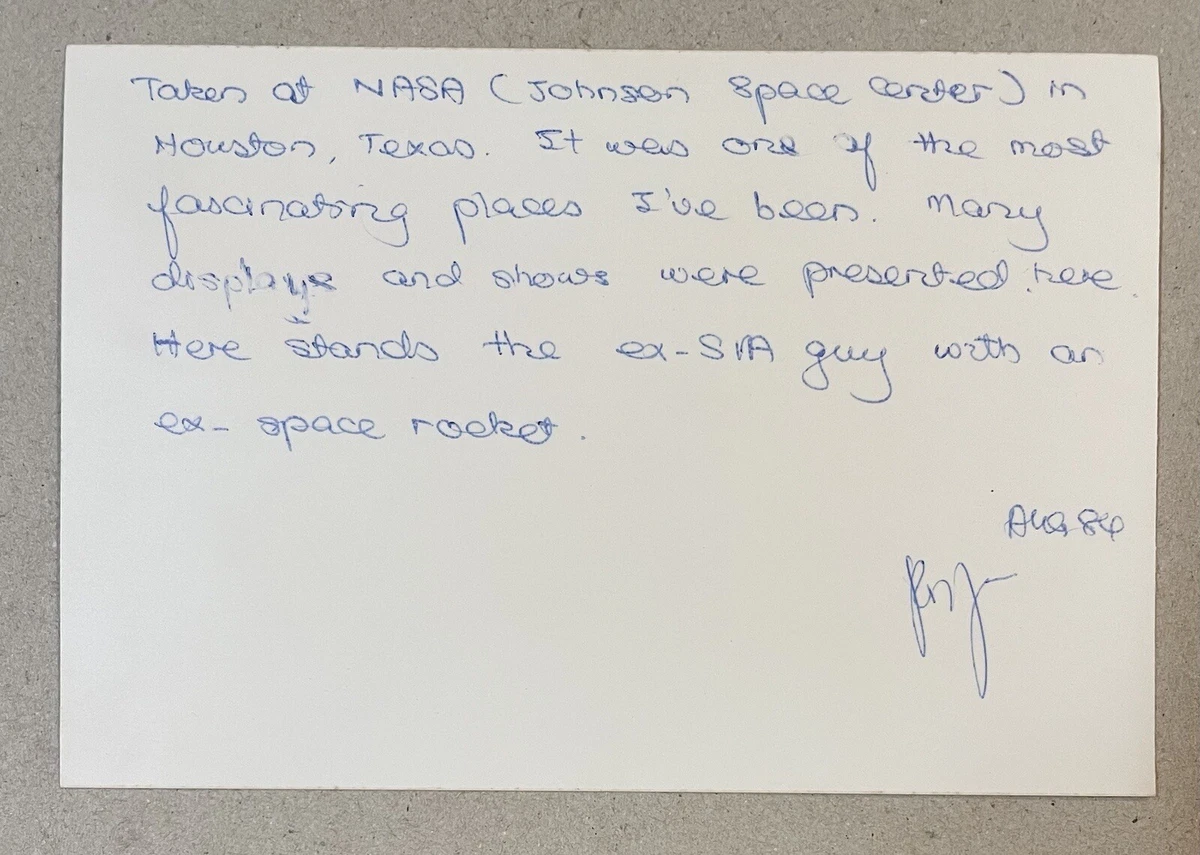 Taken at NASA (Johnson Space Center) in
Houston, Texas. It was one of the most
fascinating places I've been. Many
displays and shows were presented here.
Here stands the ex-SIA guy with an
ex-space rocket.
Aug 84